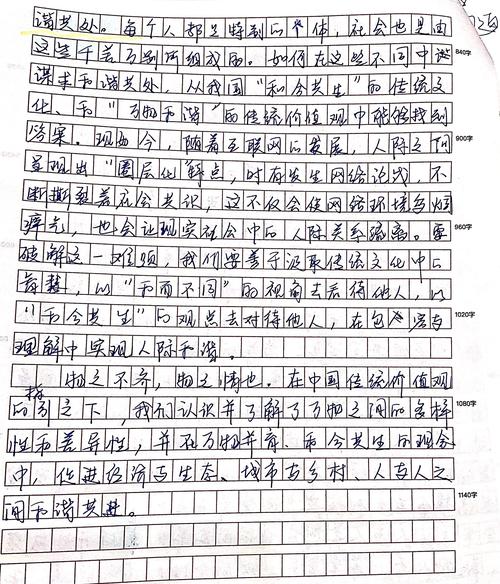 谐共处。每个人都是特别的个体，社会也是由
这些千差万别所组成的。如何在这些不同中谋 840字
谋求和谐共处，从我国“和合共生”的传统文
化、和“万物和谐”的传统价值观中能够找到
答案。现如今，随着互联网的发展，人际之间 900字
呈现出“圈层化”特点，时有发生网络论战，不
断撕裂着社会共识，这不仅会使网络环境乌烟
瘴气，也会让现实社会中的人际关系疏离。要 960字
破解这一难题，我们要善于汲取传统文化中的
智慧，以“和而不同”的视角去看待他人，以
“和合共生”的观点去对待他人，在包容与 1020字
理解中实现人际和谐。
物之不齐，物之情也。在中国传统价值观
的指引之下，我们认识并了解了万物之间的多样 1080字
性和差异性，并在万物并育、和合共生的理念
中，促进经济与生态、城市与乡村、人与人之
间和谐共进。 1140字